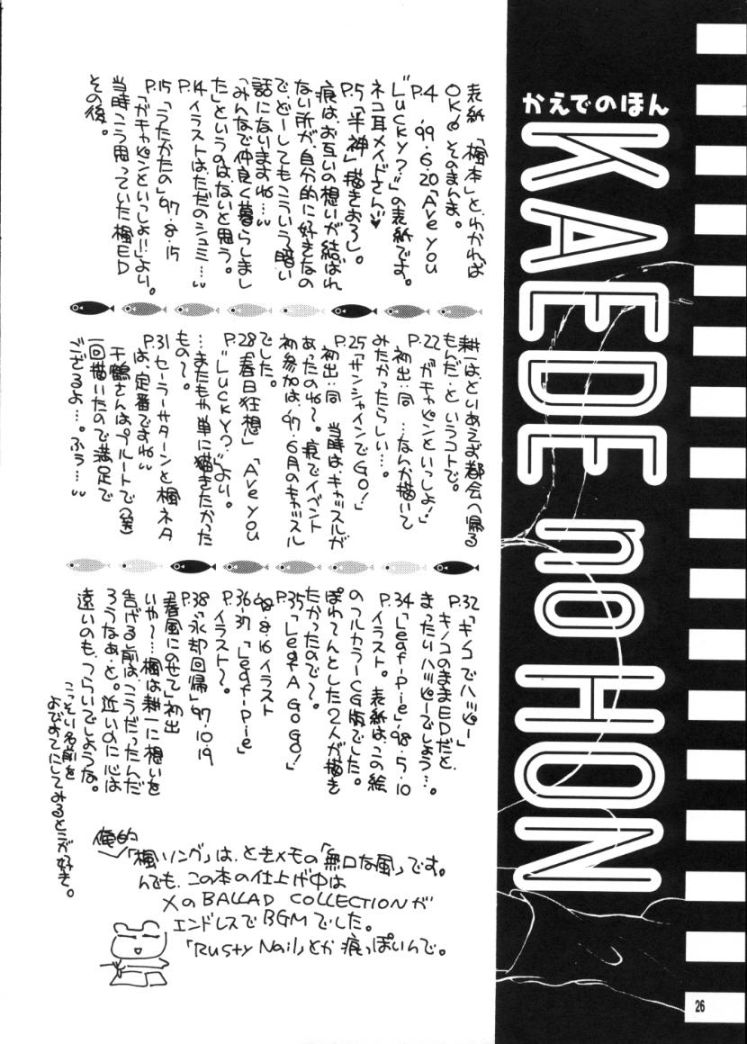 かえでのほん
KAEDE no HON
表紙「楓本」と、わかれば
OK。そのまんま。
P.4 '99.6.20「Ave you
"Lucky?"」の表紙です。
ネコ耳メイドさん♥
P.5「半神」描きおろし。
痕は、お互いの想いが結ばれ
ない所が、自分的に好きなの
で、どーしてもこういう暗い
話になりますね…。
「みんなで仲良く暮らしまし
た」というのはないと思う。
P.14 イラストはただのシュミ…。
P.15「うたかたの」'97.8.15
「ガチャピンといっしょ!!」より。
当時こう思っていた楓ED
その後。
耕一はとりあえず都会へ帰る
もんだ、というコトで。
P.22「ガチャピンといっしょ!」
初出:同 …なんか描いて
みたかったらしい…。
P.25「サンシャインでGO!」
初出:同 当時は、キャッスルが
あったのね〜。痕でイベント
初参加は、'97.6月のキャッスル
でした。
P.28「春日狂想」「Ave you
"Lucky?"」より。
…またもや単に描きたかった
もの〜。
P.31 セーラーサターンと楓ネタ
は、定番ですね
千鶴さんはプルートで(笑)
一回描いたので満足で
ござるよ…。ふぅ…
P.32「キノコでハッピー」
キノコのままEDだと、
まったりハッピーでしょう…。
P.34「Leaf-Pie」'98.5.10
イラスト。表紙は、この絵
のフルカラーCG版でした。
ぽわてんとした2人が描き
たかったので〜。
P.35「Leaf A GoGo!」
'98.8.16 イラスト
P.36-37「Leaf-Pie」
イラスト〜。
P.38「永却回帰」'97.10.19
「春風にのせて」初出
いや〜…楓は耕一に想いを
告げる前は、こうだったんだ
ろうなぁ、と。近いのに心は
遠いのも、つらいでしょうな。
俺的
「楓ソング」は、ときメモの「無口な風」です。
んでも、この本の仕上げ中は
XのBALLAD COLLECTIONが
エンドレスでBGMでした。
「Rusty Nail」とか痕っぽいんで。
26